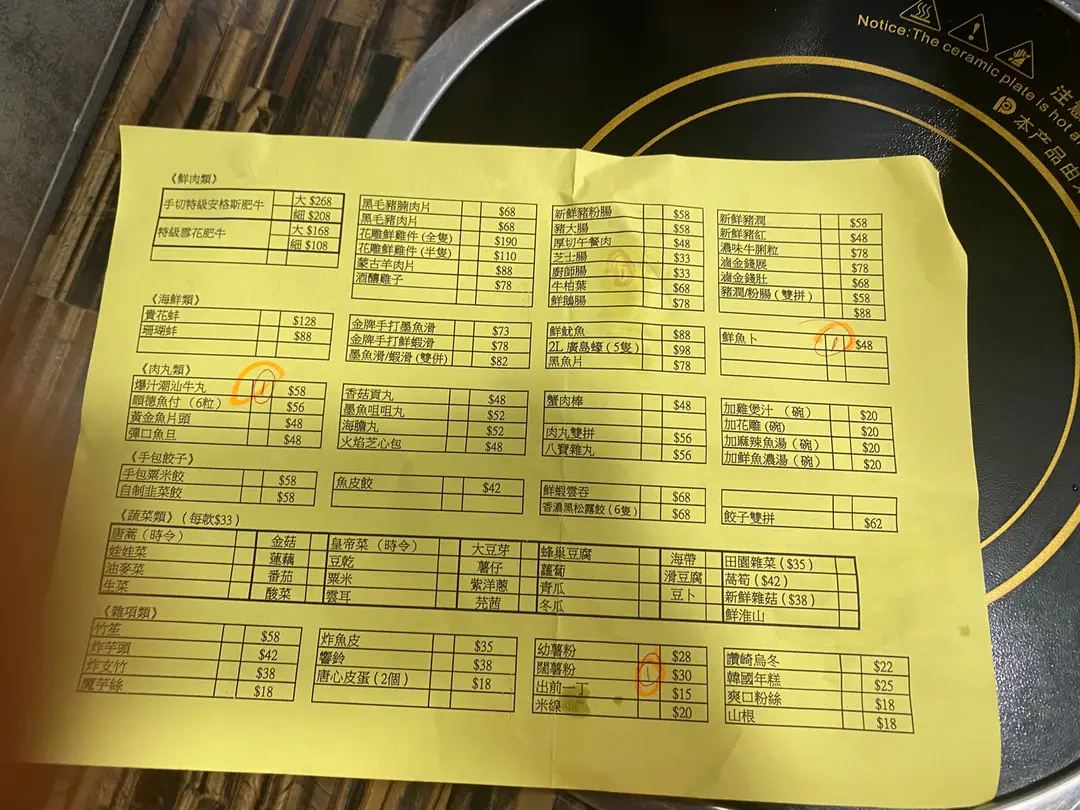 Notice:The ceramic plate is hot a
注
本产品由
《鮮肉類》
手切特級安格斯肥牛 大 $268
細 $208
特級雪花肥牛 大 $168
細 $108
黑毛豬腩肉片 $68
黑毛豬肉片 $68
花雕鮮雞件 (全隻) $190
花雕鮮雞件 (半隻) $110
蒙古羊肉片 $88
酒釀雞子 $78
新鮮豬粉腸 $58
豬大腸 $58
厚切午餐肉 $48
芝士腸 $33
廚師腸 $33
牛柏葉 $68
鮮鵝腸 $78
新鮮豬潤 $58
新鮮豬紅 $48
濃味牛脷粒 $78
滷金錢展 $78
滷金錢肚 $68
豬潤/粉腸 (雙拼) $58
$88
《海鮮類》
貴花蚌 $128
珊瑚蚌 $88
金牌手打墨魚滑 $73
金牌手打鮮蝦滑 $78
墨魚滑/蝦滑 (雙併) $82
鮮魷魚 $88
2L 廣島蠔 (5隻) $98
黑魚片 $78
鮮魚卜 1 $48
《肉丸類》
爆汁潮汕牛丸 1 $58
順德魚付 (6粒) $56
黃金魚片頭 $48
彈口魚旦 $48
香菇貢丸 $48
墨魚咀咀丸 $52
海膽丸 $52
火焰芝心包 $48
蟹肉棒 $48
肉丸雙拼 $56
八寶雜丸 $56
加雞煲汁 (碗) $20
加花雕 (碗) $20
加麻辣魚湯 (碗) $20
加鮮魚濃湯 (碗) $20
《手包餃子》
手包粟米餃 $58
自制韭菜餃 $58
魚皮餃 $42
鮮蝦雲吞 $68
香濃黑松露餃 (6隻) $68
餃子雙拼 $62
《蔬菜類》(每款$33)
唐蒿 (時令) 金菇 皇帝菜 (時令) 大豆芽 蜂巢豆腐 海帶 田園雜菜 ($35)
娃娃菜 蓮藕 豆乾 薯仔 蘿蔔 滑豆腐 萵筍 ($42)
油麥菜 番茄 粟米 紫洋蔥 青瓜 豆卜 新鮮雜菇 ($38)
生菜 酸菜 雲耳 芫茜 冬瓜 鮮淮山
《雜項類》
竹笙 $58
炸芋頭 $42
炸支竹 $38
魔芋絲 $18
炸魚皮 $35
響鈴 $38
唐心皮蛋 (2個) $18
幼薯粉 $28
闊薯粉 1 $30
出前一丁 $15
米線 $20
讚崎烏冬 $22
韓國年糕 $25
爽口粉絲 $18
山根 $18